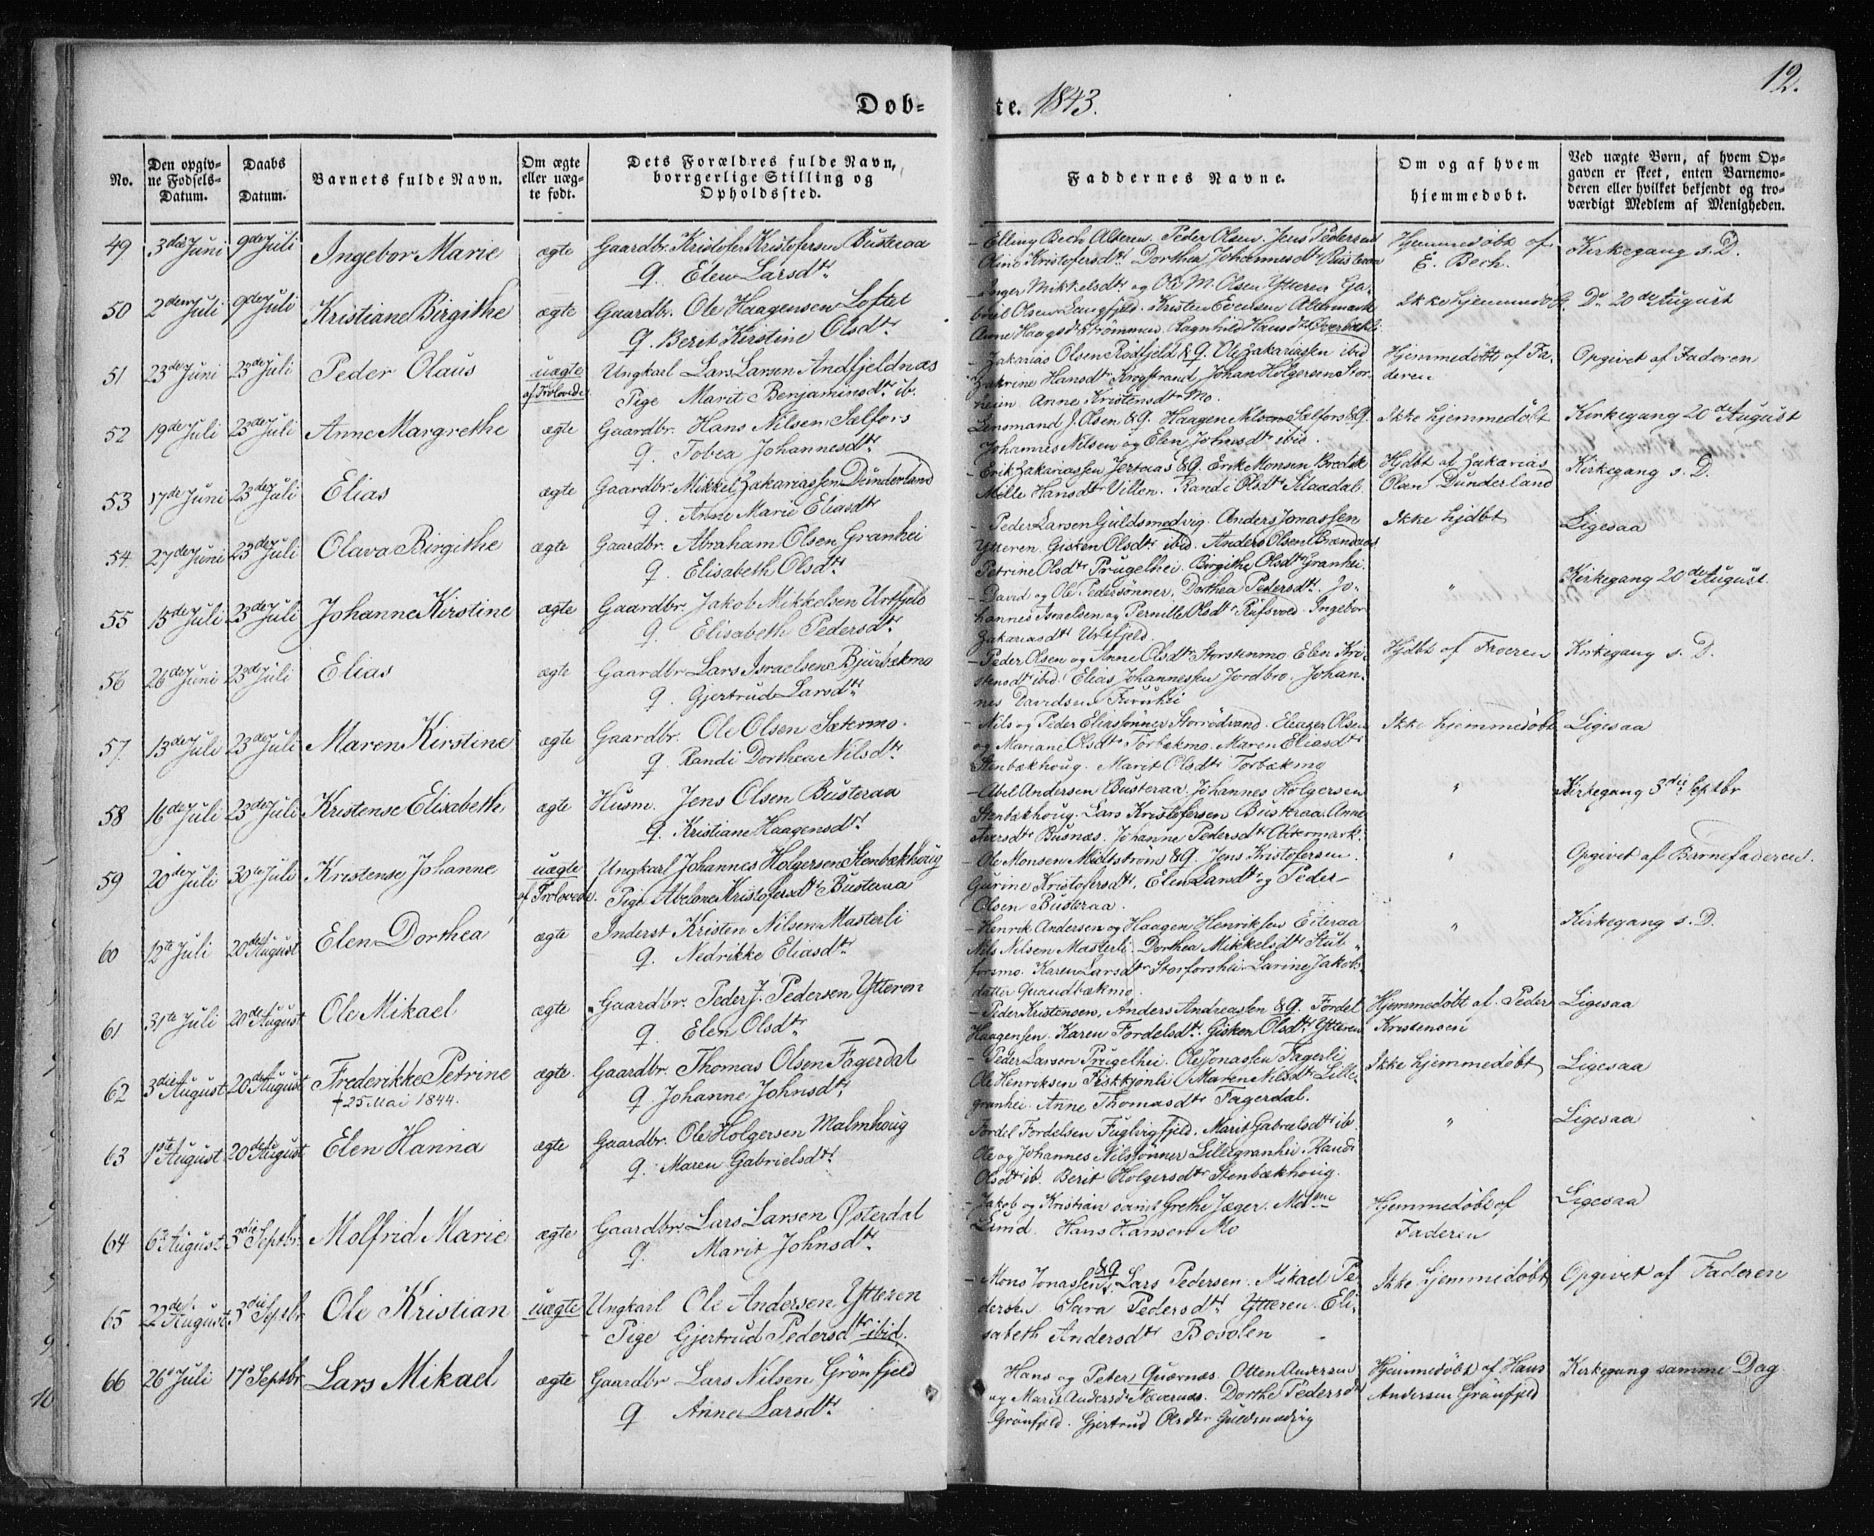 12.
Døb- te. 1843.
No. | Den opgivne Fødsels-Datum. | Daabs Datum. | Barnets fulde Navn. | Om ægte eller uægte født. | Dets Forældres fulde Navn, borrgerlige Stilling og Opholdssted. | Faddernes Navne. | Om og af hvem hjemmedøbt. | Ved uægte Børn, af hvem Opgaven er skeet, enten Barnemoderen eller hvilket bekjendt og troværdigt Medlem af Menigheden.
49 3die Juni 9de Juli Ingebor Marie ægte Gaardbr. Kristofer Kristofersen Busteraa
q. Elen Larsdtr
Elling Bech Alteren. Peder Olsen. Jens Pedersen
Oline Kristofersdtr. Dorthea Johannesdtr Busteraa
Hjemmedøbt af
E. Bech.
Kirkegang s. D.
50 2den Juli 9de Juli Kristiane Birgithe ægte Gaardbr. Ole Haagensen Loftet
q. Berit Kirstine Olsdtr.
Inger Mikkelsdtr og Ole M. Olsen Ytteren Ga-
briel Olsen Langfjeld. Kristen Evensen Altermark
Anne Haagsdtr Strømmen. Ragnhild Hansdtr
Ikke hjemmedøbt. Do 20de August
51 23de Juni 23de Juli Peder Olaus uægte
af Trolovede
Ungkarl Lars Larsen Andfjeldnæs
Pige Marit Benjaminsdtr ib.
Zakarias Olsen Rødfjeld & q. Ole Zakariassen ibid
Hansdtr Krogstrand. Johan Holgersen Stor-
heim. Anne Kristensdtr Mo.
Hjemmedøbt af Fa-
deren
Opgivet af Faderen
52 19de Juli 23de Juli Anne Margrethe ægte Gaardbr. Hans Nilsen Selfors
q. Tobea Johannesdtr
Lensmand J. Olsen & q. Haagen Nilsen Selfors & q.
Johannes Nilsen og Elen Johnsdtr ibid.
Ikke hjemmedøbt Kirkegang 20de August
53 17de Juni 23de Juli Elias ægte Gaardbr. Mikkel Zakariassen Dunderland
q. Anne Marie Eliasdtr
Erik Zakariassen Jertaas & q. Erik Monsen Bredek
Hansdtr Villen. Randi Olsdtr
Hjdbt af Zakarias
Olsen Dunderland
Kirkegang s. D.
54 27de Juni 23de Juli Olava Birgithe ægte Gaardbr. Abraham Olsen Granhei
q. Elisabeth Olsdtr
Peder Larsen Guldsmedvig. Anders Jonassen
Ytteren. Gisken Olsdtr ibid. Anders Olsen Brendaas
Petrine Olsdtr Prugelhei. Birgithe Olsdtr Granhei.
Ikke hjdbt Ligesaa
55 15de Juli 23de Juli Johanne Kirstine ægte Gaardbr. Jakob Mikkelsen Urtfjeld
q. Elisabeth Pedersdtr.
David og Ole Pedersønner. Dorthea Pedersdtr. Jo-
hannes Israelsen og Pernille Olsdtr Røfsvold. Ingebor
Zakariasdtr Urtfjeld.
" Kirkegang 20de August.
56 26de Juni 23de Juli Elias ægte Gaardbr. Lars Israelsen Bjurbækmo
q. Gjertrud Larsdtr
Peder Olsen og Anne Olsdtr Storstenmo. Elen Kri-
stensdtr ibid. Elias Johannesen Jordbro. Johan-
nes Davidsen Furuhei
Hjdbt af Faderen Kirkegang s. D.
57. 13de Juli 23de Juli Maren Kirstine ægte Gaardbr. Ole Olsen Sætermo.
q. Randi Dorthea Nilsdtr
Nils og Peder Eliasønner Storrødvand. Eleazer Olsen
og Mariane Olsdtr Torbækmo. Maren Eliasdtr
Stenbækhoug. Marit Olsdtr Torbækmo
Ikke hjemmedøbt Ligesaa
58 16de Juli 23de Juli Kristense Elisabeth ægte Husm. Jens Olsen Busteraa
q. Kristiane Haagensdtr
Abel Andersen Busteraa. Johannes Holgersen
Stenbækhoug. Lars Kristofersen Busteraa. Anne
Busnæs. Johanne Pedersdtr Altermark.
" Kirkegang 3die Septbr
59 20de Juli 30te Juli Kristense Johanne uægte
af Trolovede.
Ungkarl Johannes Holgersen Stenbækhoug
Pige Abelone Kristofersdtr Busteraa
Ole Monsen Midtstrøm & q. Jens Kristofersen.
Gurine Kristofersdtr. Elen Larsdtr og Peder
Olsen Busteraa.
" Opgivet af Barnefaderen.
60 12te Juli 20de August Elen Dorthea ægte Inderst Kristen Nilsen Masterli
q. Nedrikke Eliasdtr
Henrik Andersen og Haagen Henriksen Eiteraa
Nils Nilsen Masterli. Dorthea Mikkelsdtr Stut-
forsmo. Karen Larsdtr Storforshei. Larine Jakobs-
datter Quandbækmo.
" Kirkegang s. D.
61 31te Juli 20de August Ole Mikael ægte Gaardbr. Peder J. Pedersen Ytteren
q. Elen Olsdtr
Peder Kristensen, Anders Andreassen & q. Fordel
Haagensen. Karen Fordelsdtr. Gisken Olsdtr Ytteren
Hjemmedøbt af Peder
Kristensen
Ligesaa
62 3die August 20de August Frederikke Petrine
† 25 Mai 1844.
ægte Gaardbr. Thomas Olsen Fagerdal
q. Johanne Johnsdtr.
Peder Larsen Prugelhei. Ole Jonassen Fagerli
Ole Henriksen Fiskkjønli. Maren Nilsdtr Lille-
granhei. Anne Thomasdtr Fagerdal.
Ikke hjemmedøbt Ligesaa
63 1ste August 20de August Elen Hanna ægte Gaardbr. Ole Holgersen Malmhoug
q. Maren Gabrielsdtr
Fordel Fordelsen Fuglvigfjeld. Marit Gabrielsdtr ib.
Ole og Johannes Nilsønner Lillegranhei. Randi
Olsdtr ib. Berit Holgersdtr Stenbækhoug.
" Ligesaa
64 6te August 3die Septbr Molfrid Marie ægte Gaardbr. Lars Larsen Østerdal
q. Marit Johnsdtr.
Jakob og Kristian samt Grethe Jæger. Madme
Lund. Hans Hansen Mo
Hjemmedøbt af
Faderen
Ligesaa
65 22de August 3die Septbr Ole Kristian uægte Ungkarl Ole Andersen Ytteren
Pige Gjertrud Pedersdtr ibid.
Mons Jonassen & q. Lars Pedersen. Mikael Pe-
dersen. Sara Pedersdtr Ytteren. Eli-
sabeth Andersdtr Bosolen
Ikke hjemmedøbt Opgivet af Faderen
66 26de Juli 17de Septbr Lars Mikael ægte Gaardbr Lars Nilsen Grønfjeld
q Anne Larsdtr
Hans og Peter Quærnæs. Otten Andersen
og Marit Andersdtr. Dorthe Pedersdtr
Grønfjeld. Gjertrud Olsdtr Guldsmedvig
Hjemmedøbt af Hans
Andersen Grønfjeld
Kirkegang samme Dag